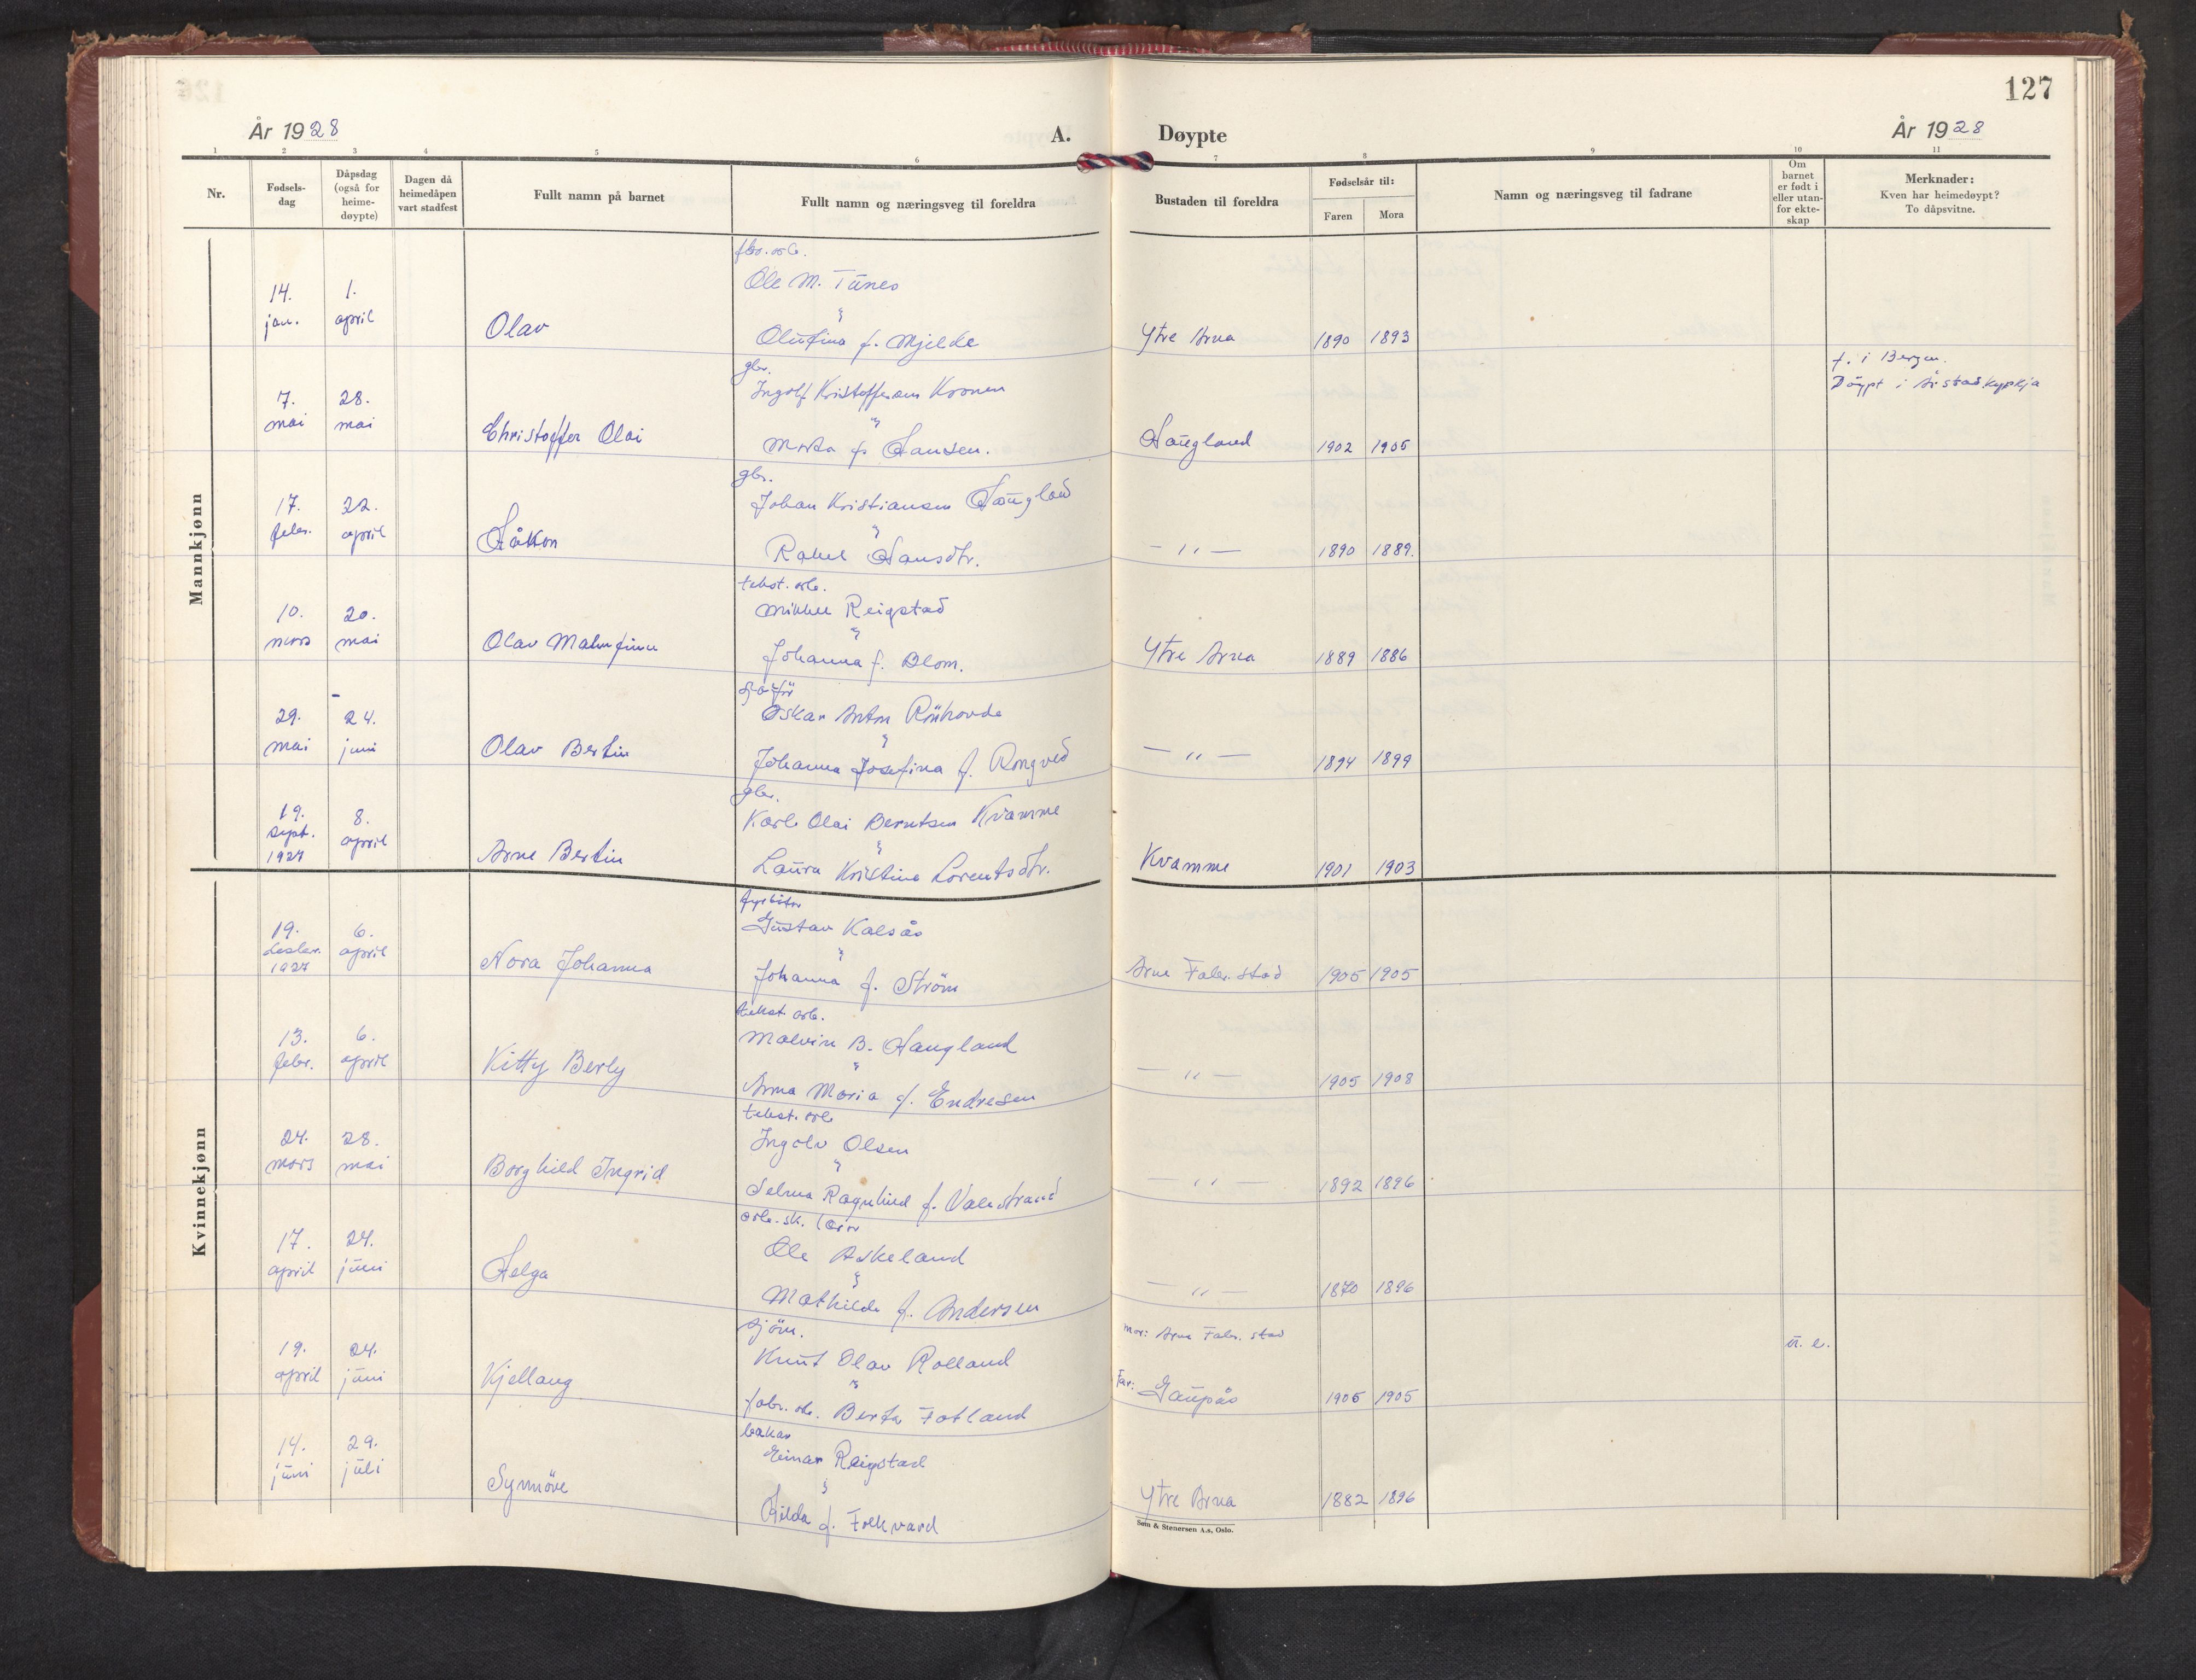 127
År 1928
A.
Døypte
År 1928
1 2 3 4 5 6 7 8 9 10 11
Nr.
Fødsels-
dag
Dåpsdag
(også for
heime-
døypte)
Dagen då
heimedåpen
vart stadfest
Fullt namn på barnet
Fullt namn og næringsveg til foreldra
Bustaden til foreldra
Fødselsår til:
Faren
Mora
Namn og næringsveg til fadrane
Om
barnet
er født i
eller utan-
for ekte-
skap
Merknader:
Kven har heimedøypt?
To dåpsvitne.
Mannkjønn
fbr. arb.
Ole M. Tunes
14. jan. 1. april Olav
Olufina f. Mjelde Ytre Arna 1890 1893
f. i Bergen.
Döypt i Årstadkyrkja
gbr.
Ingolf Kristoffersen Kronen
7. mai 28. mai Christoffer Olai
Marta f. Hansen. Haugland 1902 1905
gbr.
Johan Kristiansen Haugland
17. febr. 22. april Håkon
Rakel Hansdtr. — " — 1890 1889.
tekst. arb.
Mikkel Reigstad
10. mars 20. mai Olav Malmfinn
Johanna f. Blom. Ytre Arna 1889 1886
sjåför
Oskar Anton
29. mai 24. juni Olav Bertin
Johanna Josefina f. Rongved — " — 1894 1899
gbr.
Karl Olai Berntsen Kvamme
19. sept. 1927 8. april Arne Bertin
Laura Kristine Lorentsdtr. Kvamme 1901 1903
Kvinnekjønn
fyrbötar
Gustav Kalsås
19. desbr. 1927 6. april Nora Johanna
Johanna f. Ström Arna Fabr. stad 1905 1905
tekst. arb.
Malvin B. Haugland
13. febr. 6. april Kitty Berly
Anna Maria f. Endresen — " — 1905 1908
tekst. arb
Ingolv Olsen
24. mars 28. mai Borghild Ingrid
Selma Ragnhild f. Valestrand — " — 1892 1896
arb. sk. lærar
Ole Askeland
17. april 24. juni Helga
Mathilde f. Andersen — " — 1870 1896
sjöm.
Knut Olav Rolland
mor: Arna Fabr. stad
u. e.
19. april 24. juni Kjellaug
fabr. arb. Berta Fotland Far: Gaupås 1905 1905
bakar
Einar Reigstad
14. juni 29. juli Synnöve
Hilda f. Folkvard Ytre Arna 1882 1896
Sem & Stenersen A.s, Oslo.